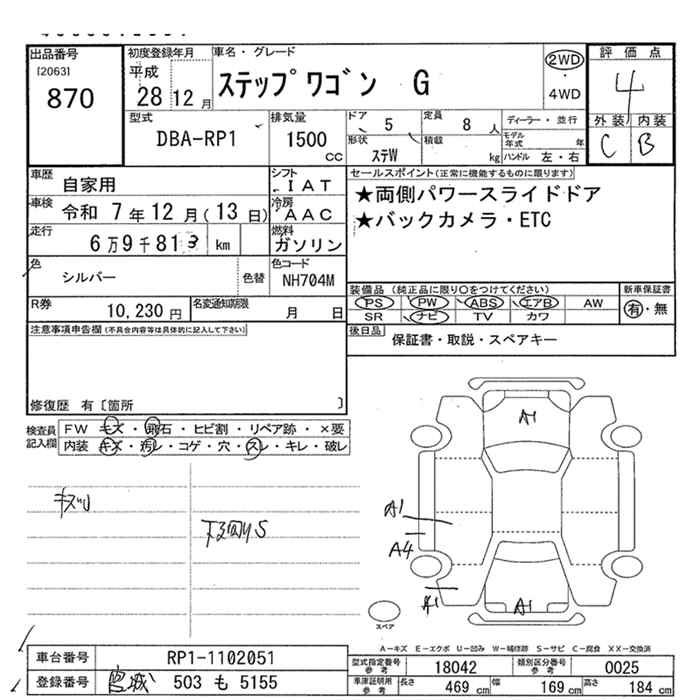 出品番号 初度登録年月 車名・グレード 評価点
[2063] 平成 ステップワゴン G 2WD 4
870 28 12月 ・
4WD 外装 内装
型式 排気量 ドア 5 定員 8人 ディーラー・並行 C B
DBA-RP1 1500cc 形状 ステW 積載 kg モデル年式 年
ハンドル 左・右
車歴 自家用 シフト IAT セールスポイント(正常に機能するものに限ります)
車検 令和 7年12月(13日) 冷房 AAC ★両側パワースライドドア
走行 6万9千813 km 燃料 ガソリン ★バックカメラ・ETC
色 シルバー 色替 色コード NH704M
装備品(純正品に限り○をつけてください) 新車保証書
R券 10,230円 名変通知期限 月 日 PS PW ABS エアB AW 有・無
SR ナビ TV カワ
注意事項申告欄(不具合内容等は具体的に記入して下さい) 後日品 保証書・取説・スペアキー
修復歴 有〔箇所 〕
検査員記入欄 FW キズ・飛石・ヒビ割・リペア跡・×要
内装 キズ・汚レ・コゲ・穴・スレ・キレ・破レ
A1
キズ
下回りS
A1
A4
A1
A1
スペア
A-キズ E-エクボ U-凹み W-補修跡 S-サビ C-腐食 XX-交換済
車台番号 RP1-1102051 型式指定番号 参考 18042 類別区分番号 参考 0025
登録番号 宮城 503 も 5155 車庫証明用 参考 長さ 469cm 幅 169cm 高さ 184cm